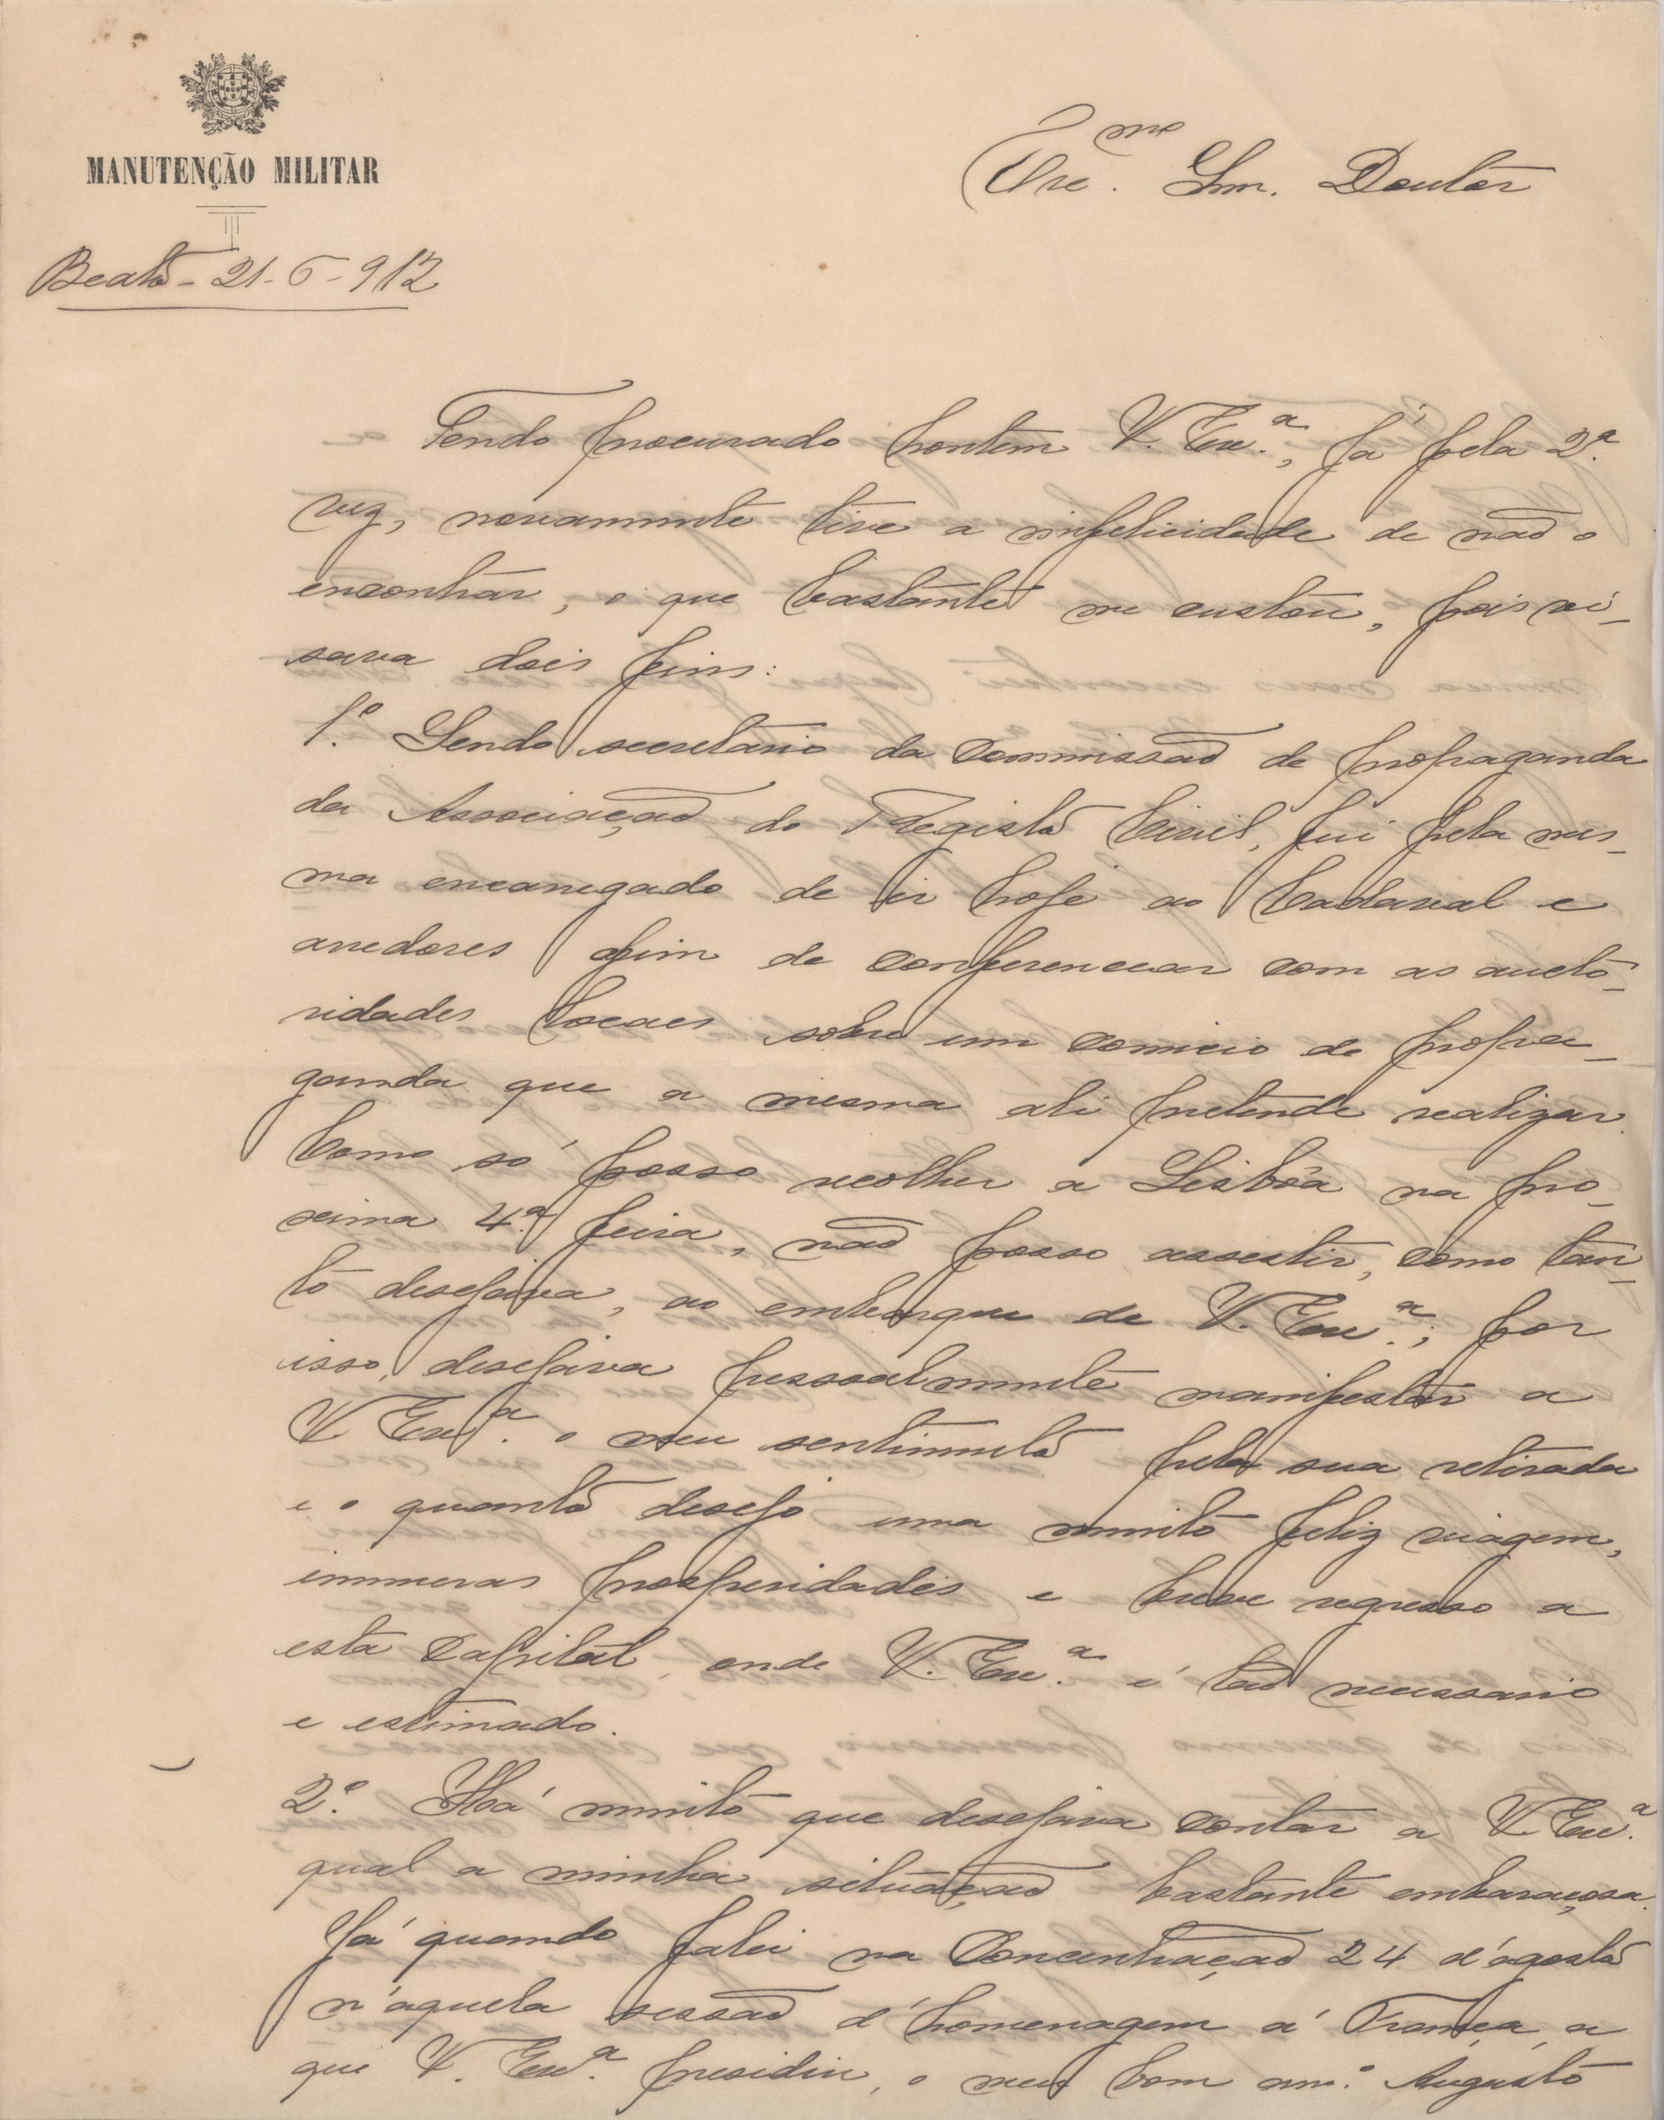 MANUTENÇÃO MILITAR
Exc.mo Snr. Doutor
Beato - 21-6-912
Tendo procurado hontem V. Exc.ª, já pela 2.ª
vez, novamente tive a infelicidade de não o
encontrar, o que bastante me custou, pois vi-
sava dois fins:
1.º Sendo secretario da Commissão de propaganda
da Associação do Registo Civil, fui pela mes-
ma encarregado de ir hoje ao Cadaval e
arredores afim de conferenciar com as aucto-
ridades locaes sobre um comicio de propa-
ganda que a mesma ali pretende realizar.
Como só posso recolher a Lisbôa na pro-
xima 4.ª feira, não posso assestir, como tan-
to desejava, ao embarque de V. Exc.ª; por
isso, desejava pessoalmente manifestar a
V. Exc.ª o meu sentimento pela sua retirada
e o quanto desejo uma muito feliz viagem,
inumeras prosperidades e breve regresso a
esta Capital, onde V. Exc.ª é tão necessario
e estimado.
2.º Há muito que desejava contar a V. Exc.ª
qual a minha situação bastante embaraçosa.
Já quando falei na Concentração 24 d'agosto
n'aquela sessão d'homenagem á França, a
que V. Exc.ª presidiu, o meu bom am.º Augusto